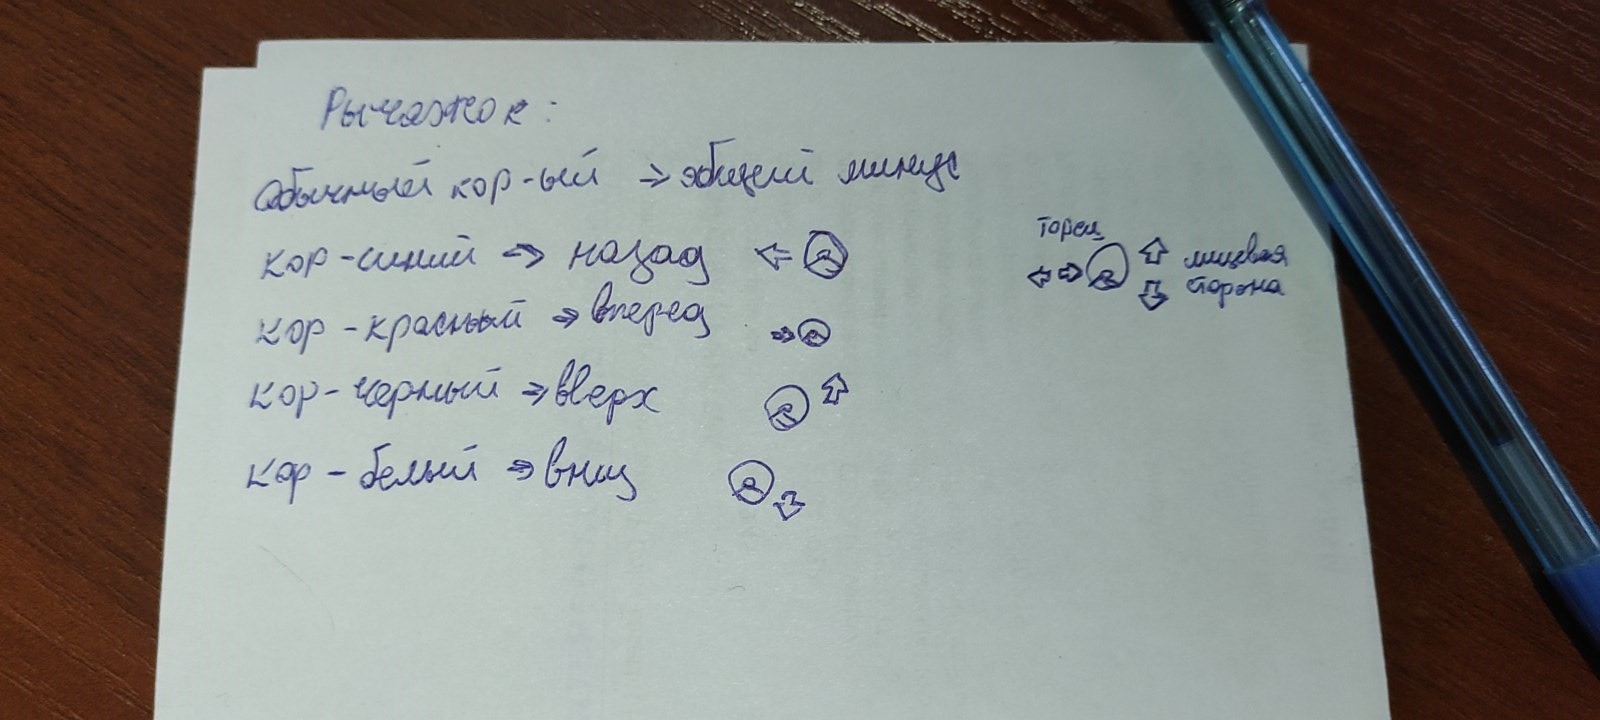 Рычажок:
Обычный кор-ый → общий минус
кор-синий → назад
кор-красный → вперед
кор-черный → вверх
кор-белый → вниз
торец
лицевая
сторона